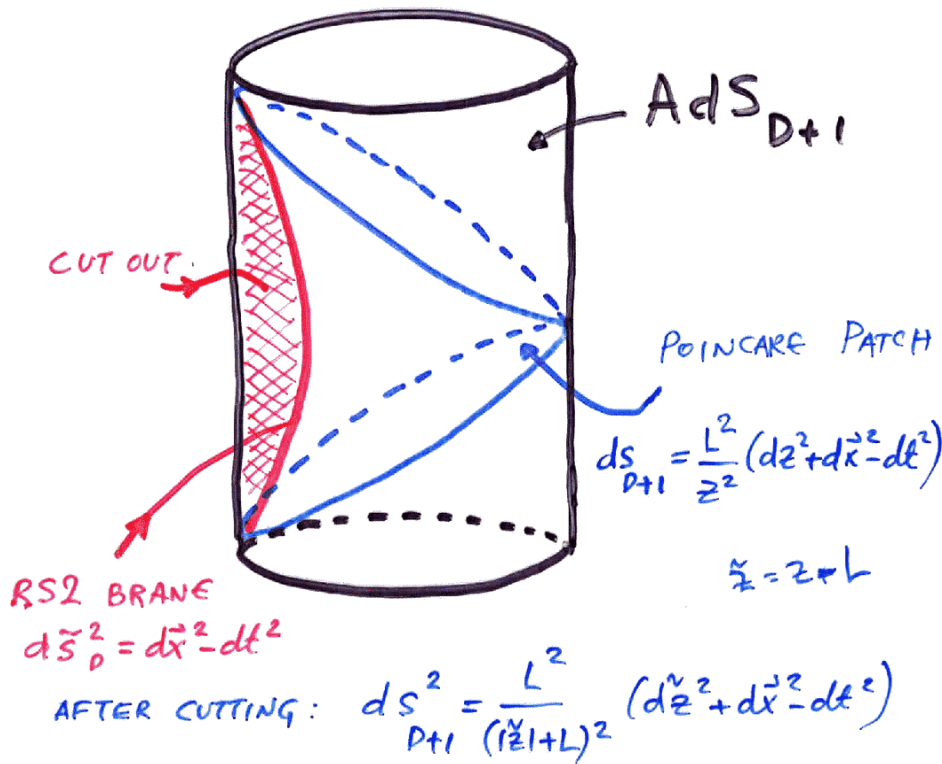 AdS_{D+1}
CUT OUT
POINCARE PATCH
ds²_{D+1} = L²/z² (dz²+dx⃗²-dt²)
z̃ = z-L
RS2 BRANE
ds̃²_D = dx⃗²-dt²
AFTER CUTTING: ds²_{D+1} = L²/(|z̃|+L)² (dz̃²+dx⃗²-dt²)